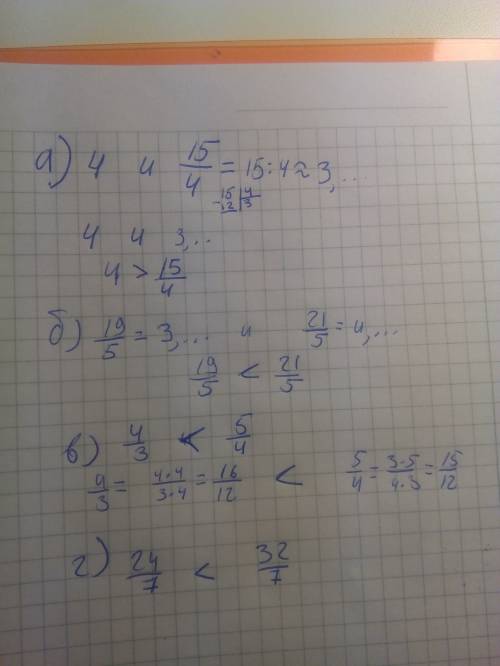 а) 4 и 15/4 = 15:4 ≈ 3,...
-15 | 4
12 | 3
4 и 3,...
4 > 15/4
б) 19/5 = 3,... и 21/5 = 4,...
19/5 < 21/5
в) 4/3 < 5/4
4/3 = 4·4/3·4 = 16/12 < 5/4 = 3·5/4·3 = 15/12
г) 24/7 < 32/7